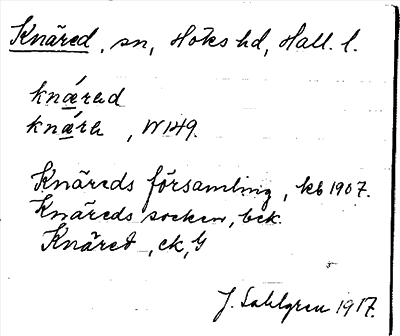 Knäred, sn, Höks hd, Hall. l.
knǽred
knǽre, W149.
Knäreds församling, kb 1907.
Knäreds socken, bek.
Knäred, ek, G
J. Sahlgren 1917.